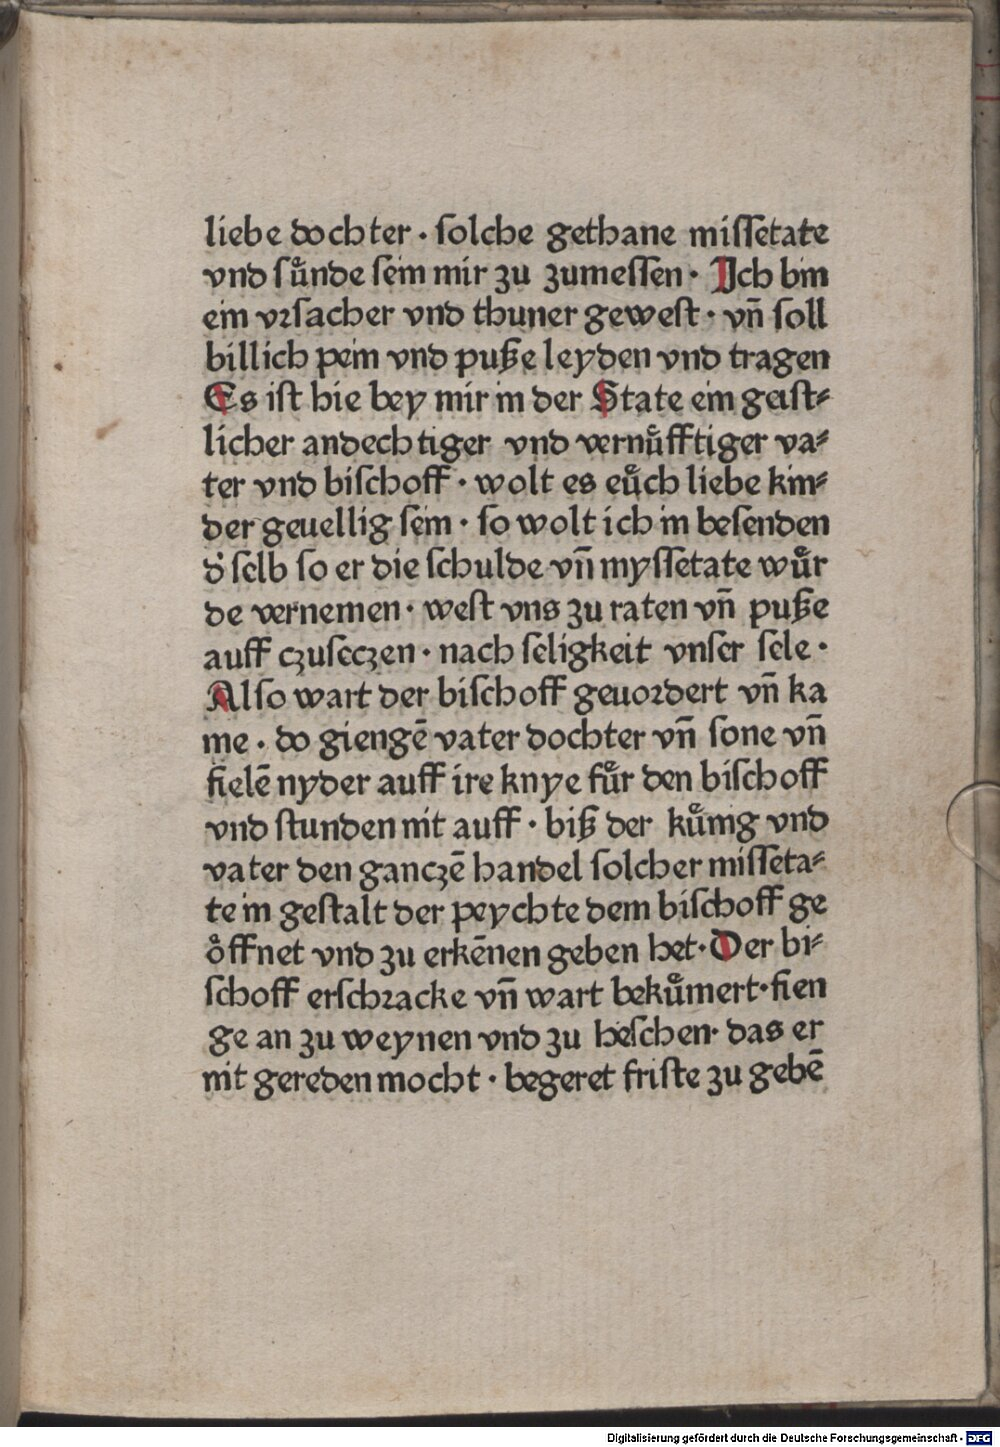 liebe dochter · ſolche gethane miſſetate
vnd ſuͤnde ſein mir zu zumeſſen · Ich bin
ein vrſacher vnd thuner geweſt · vn̄ ſoll
billich pein vnd puſze leyden vnd tragen
Es iſt hie bey mir in der State ein geiſt⸗
licher andechtiger vnd vernuͤfftiger va⸗
ter vnd biſchoff · wolt es euͤch liebe kin⸗
der geuellig ſein · ſo wolt ich in beſenden
d' ſelb ſo er die ſchulde vn̄ myſſetate wuͤr
de vernemen · weſt vns zu raten vn̄ puſze
auff czuſeczen · nach ſeligkeit vnſer ſele ·
Alſo wart der biſchoff geuordert vn̄ ka
me · do giengē vater dochter vn̄ ſone vn̄
fielē nyder auff ire knye fuͤr den biſchoff
vnd ſtunden nit auff · biſz der kuͤnig vnd
vater den ganczē handel ſolcher miſſeta⸗
te in geſtalt der peychte dem biſchoff ge
oͤffnet vnd zu erkēnen geben het · Der bi⸗
ſchoff erſchracke vn̄ wart bekuͤmert · fien
ge an zu weynen vnd zu heſchen · das er
nit gereden mocht · begeret friſte zu gebē
Digitalisierung gefördert durch die Deutsche Forschungsgemeinschaft - DFG